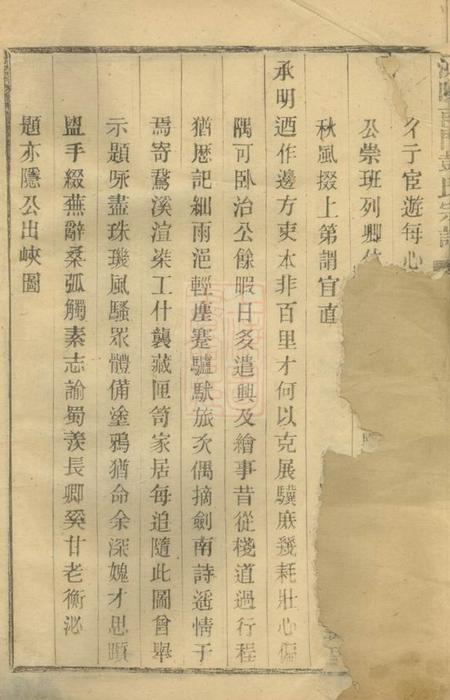 彭氏宗譜
介于宦遊每心
公崇班列卿
秋風掇上第謂宜直
承明迺作邊方吏本非百里才何以克展驥庶幾耗壯心偏
隅可臥治公餘暇日多遣興及繪事昔從棧道過行程
猶歷記細雨浥輕塵蹇驢馱旅次偶摘劍南詩遥情于
焉寄鵞溪渲染工什襲藏匣笥家居每追隨此圖曾舉
示題咏盡珠璣風騷衆體備塗鴉猶命余深媿才思躓
盥手綴蕪辭桑弧觸素志諭蜀羨長卿奚甘老衡泌
題亦隱公出峽圖